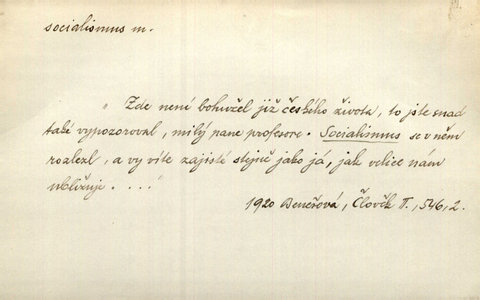 socialismus m.
„ Zde není bohužel již českého života, to jste snad
také vypozoroval, milý pane profesore. Socialismus se v něm
rozlezl, a vy víte zajisté stejně jako já, jak velice nám
ubližuje . . . .“
1920 Benešová, Člověk II., 546, 2.